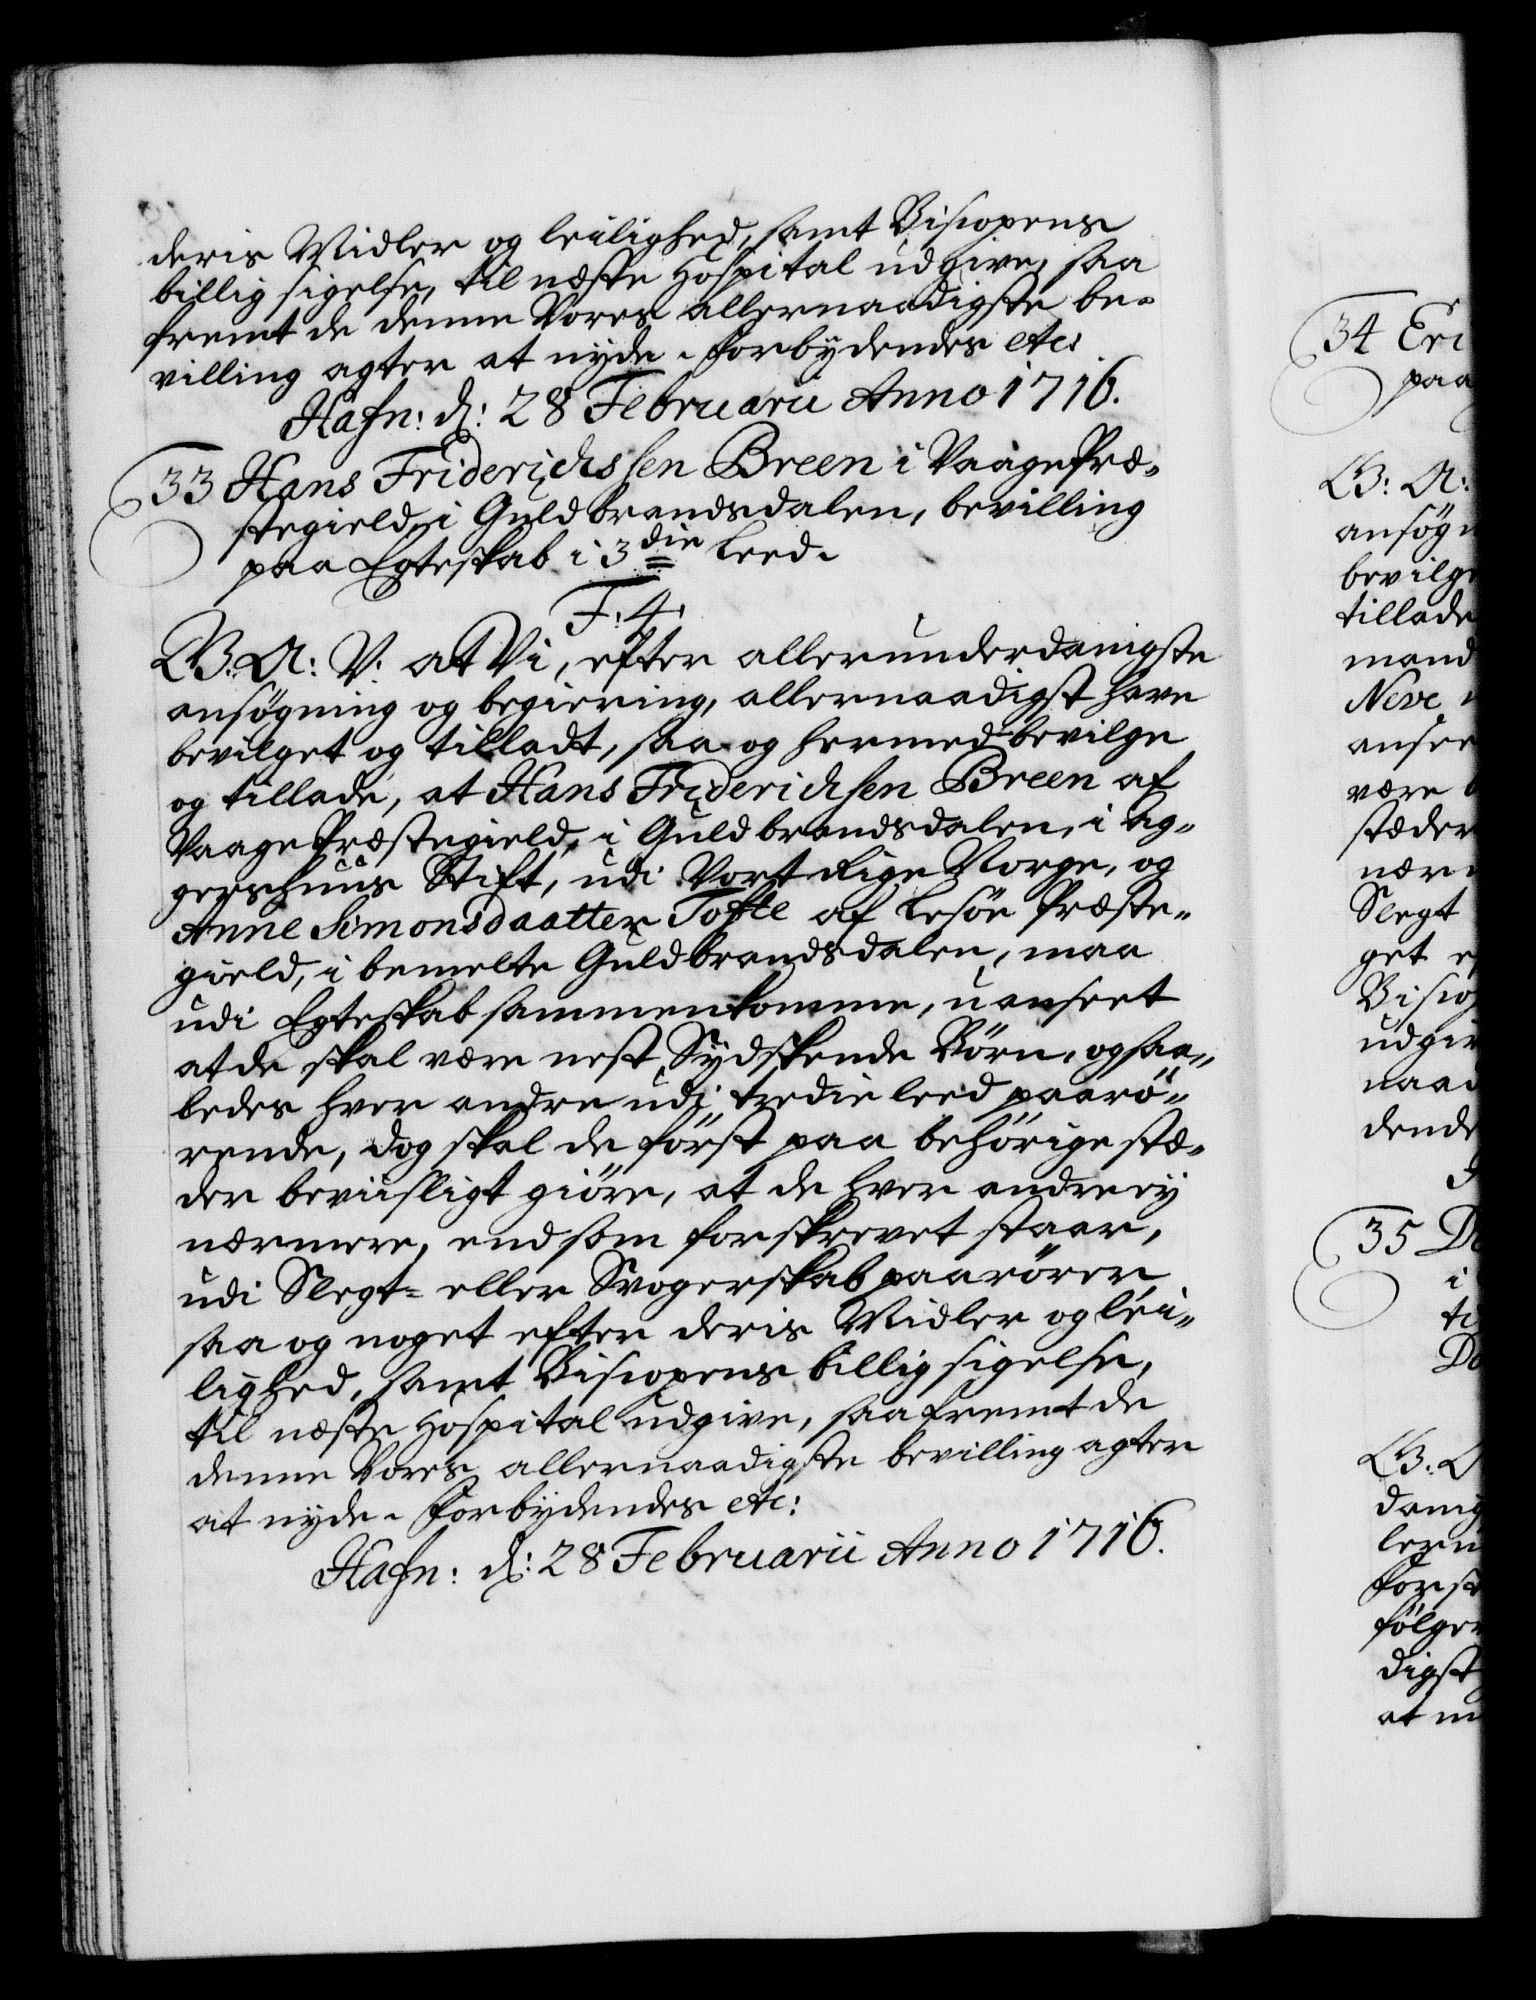 deris Midler og leilighed, samt Bispens
billig sigelse, til næste Hospital udgive, saa
fremt de denne Vores allernaadigste be-
villing agter at nyde. Forbydendes etc:
Hafn: d: 28 Februarii Anno 1716.
33 Hans Friderichssen Breen i Vaage Præ-
stegield i Guldbrandsdalen, bevilling
paa Egteskab i 3die Leed.
F. 4.
G: A: V. at Vi, efter allerunderdanigste
ansøgning og begiering, allernaadigst have
bevilget og tilladt, saa og hermed bevilge
og tillade, at Hans Friderichsen Breen af
Vaage Præstegield, i Guldbrandsdalen, i Ag-
gershuus Stift, udi Vort Rige Norge, og
Anne Simonsdaatter Tofte af Lesøe Præste-
gield, i bemelte Guldbrandsdalen, maa
udi Egteskab sammenkomme, uanseet
at de skal være nest Sydskende Børn, og saa-
ledes hver andre udi tredie leed paarø-
rende, dog skal de først paa behørige stæ-
der beviisligt giøre, at de hver andre ey
nærmere, end som forskrevet staar,
udi Slegt- eller Svogerskab paarører,
saa og noget efter deris Midler og lei-
lighed, samt Biscopens billig sigelse,
til næste Hospital udgive, saafremt de
denne Vores allernaadigste bevilling agter
at nyde. Forbydendes etc:
Hafn: d: 28 Februarii Anno 1716.
34 Eri
paa
G: A:
ansøgn
bevilge
tillade
mand
Neve
ansee
være
stæder
nærm
Slegt
get ef
Biscop
udgiv
naad
dende
35
i
ti
Do
G:
danig
lern
Forst
følger
digst
at m